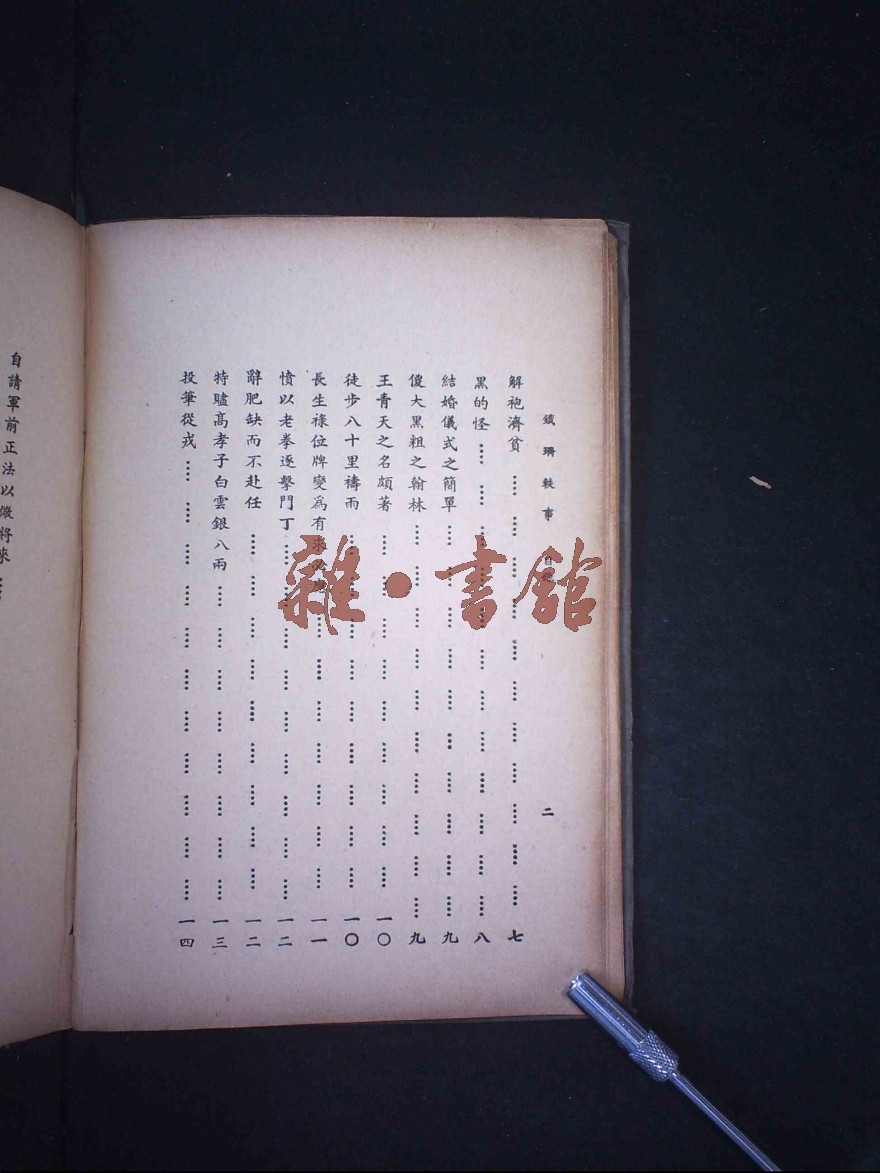 鐵珊軼事 目 二
解袍濟貧 ………… 七
黑的怪 ………… 八
結婚儀式之簡單 ………… 九
傻大黑粗之翰林 ………… 九
王青天之名頗著 ………… 一〇
徒步八十里禱雨 ………… 一〇
長生祿位牌變為有求必 ………… 一一
憤以老拳逐擊門丁 ………… 一二
辭肥缺而不赴任 ………… 一二
特贐高孝子白雲銀八兩 ………… 一三
投筆從戎 ………… 一四
自請軍前正法以儆將來 …
雜·書館